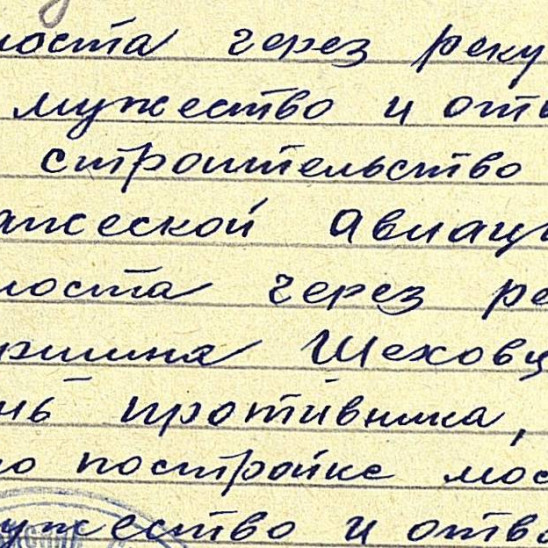 моста через реку
мужество и отв
строительство
ажеской авиац
моста через ре
ршина Шеховц
нь противника,
по постройке мос
мужество и отва